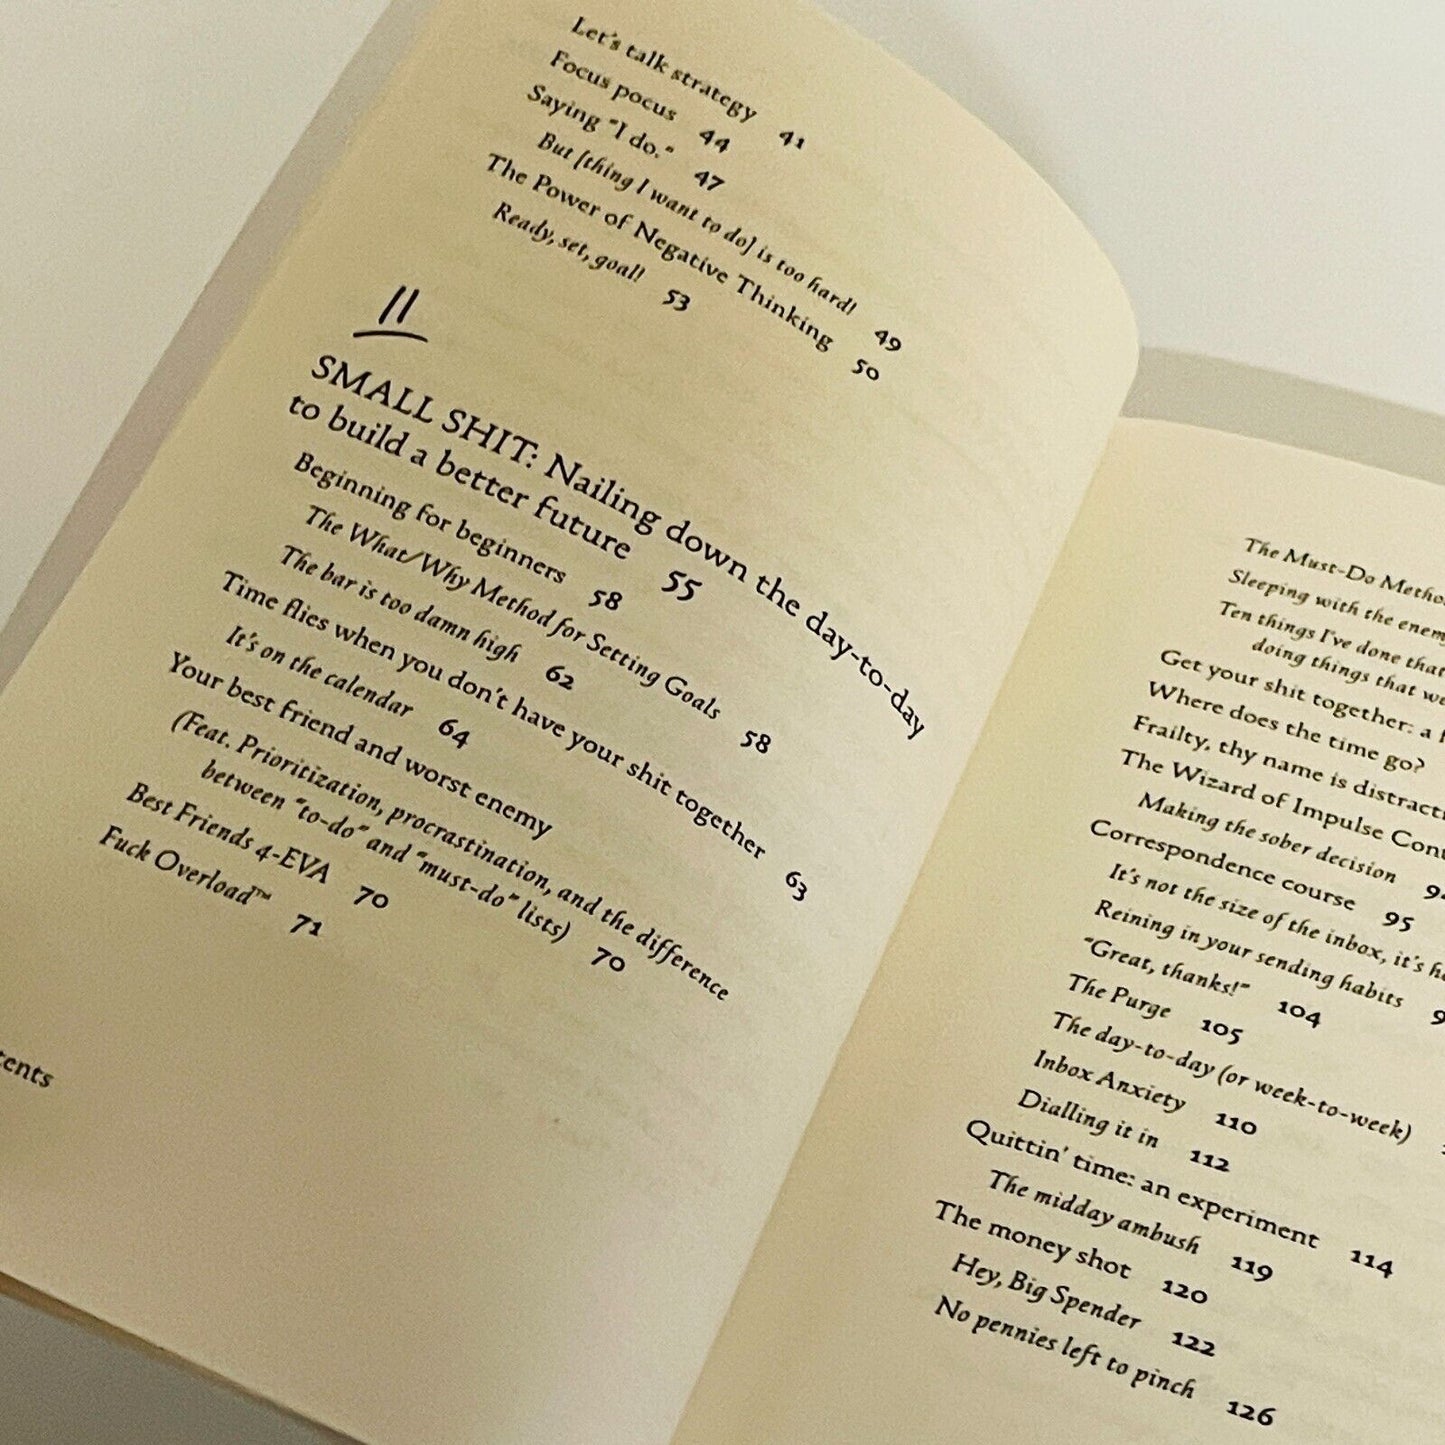 Let's talk strategy 41
Focus pocus 44
Saying "I do." 47
But [thing I want to do] is too hard! 49
The Power of Negative Thinking 50
Ready, set, goal! 53
II
SMALL SHIT: Nailing down the day-to-day
to build a better future 55
Beginning for beginners 58
The What/Why Method for Setting Goals 58
The bar is too damn high 62
Time flies when you don't have your shit together 63
It's on the calendar 64
Your best friend and worst enemy
(Feat. Prioritization, procrastination, and the difference
between "to-do" and "must-do" lists) 70
Best Friends 4-EVA 70
Fuck Overload™ 71
The Must-Do
Sleeping with the
Ten things I've done
doing things that
Get your shit together: a
Where does the time go?
Frailty, thy name is
The Wizard of Impulse
Making the sober decision
Correspondence course 95
It's not the size of the inbox, it's
Reining in your sending habits
"Great, thanks!" 104
The Purge 105
The day-to-day (or week-to-week)
Inbox Anxiety 110
Dialling it in 112
Quittin' time: an experiment 114
The midday ambush 119
The money shot 120
Hey, Big Spender 122
No pennies left to pinch 126